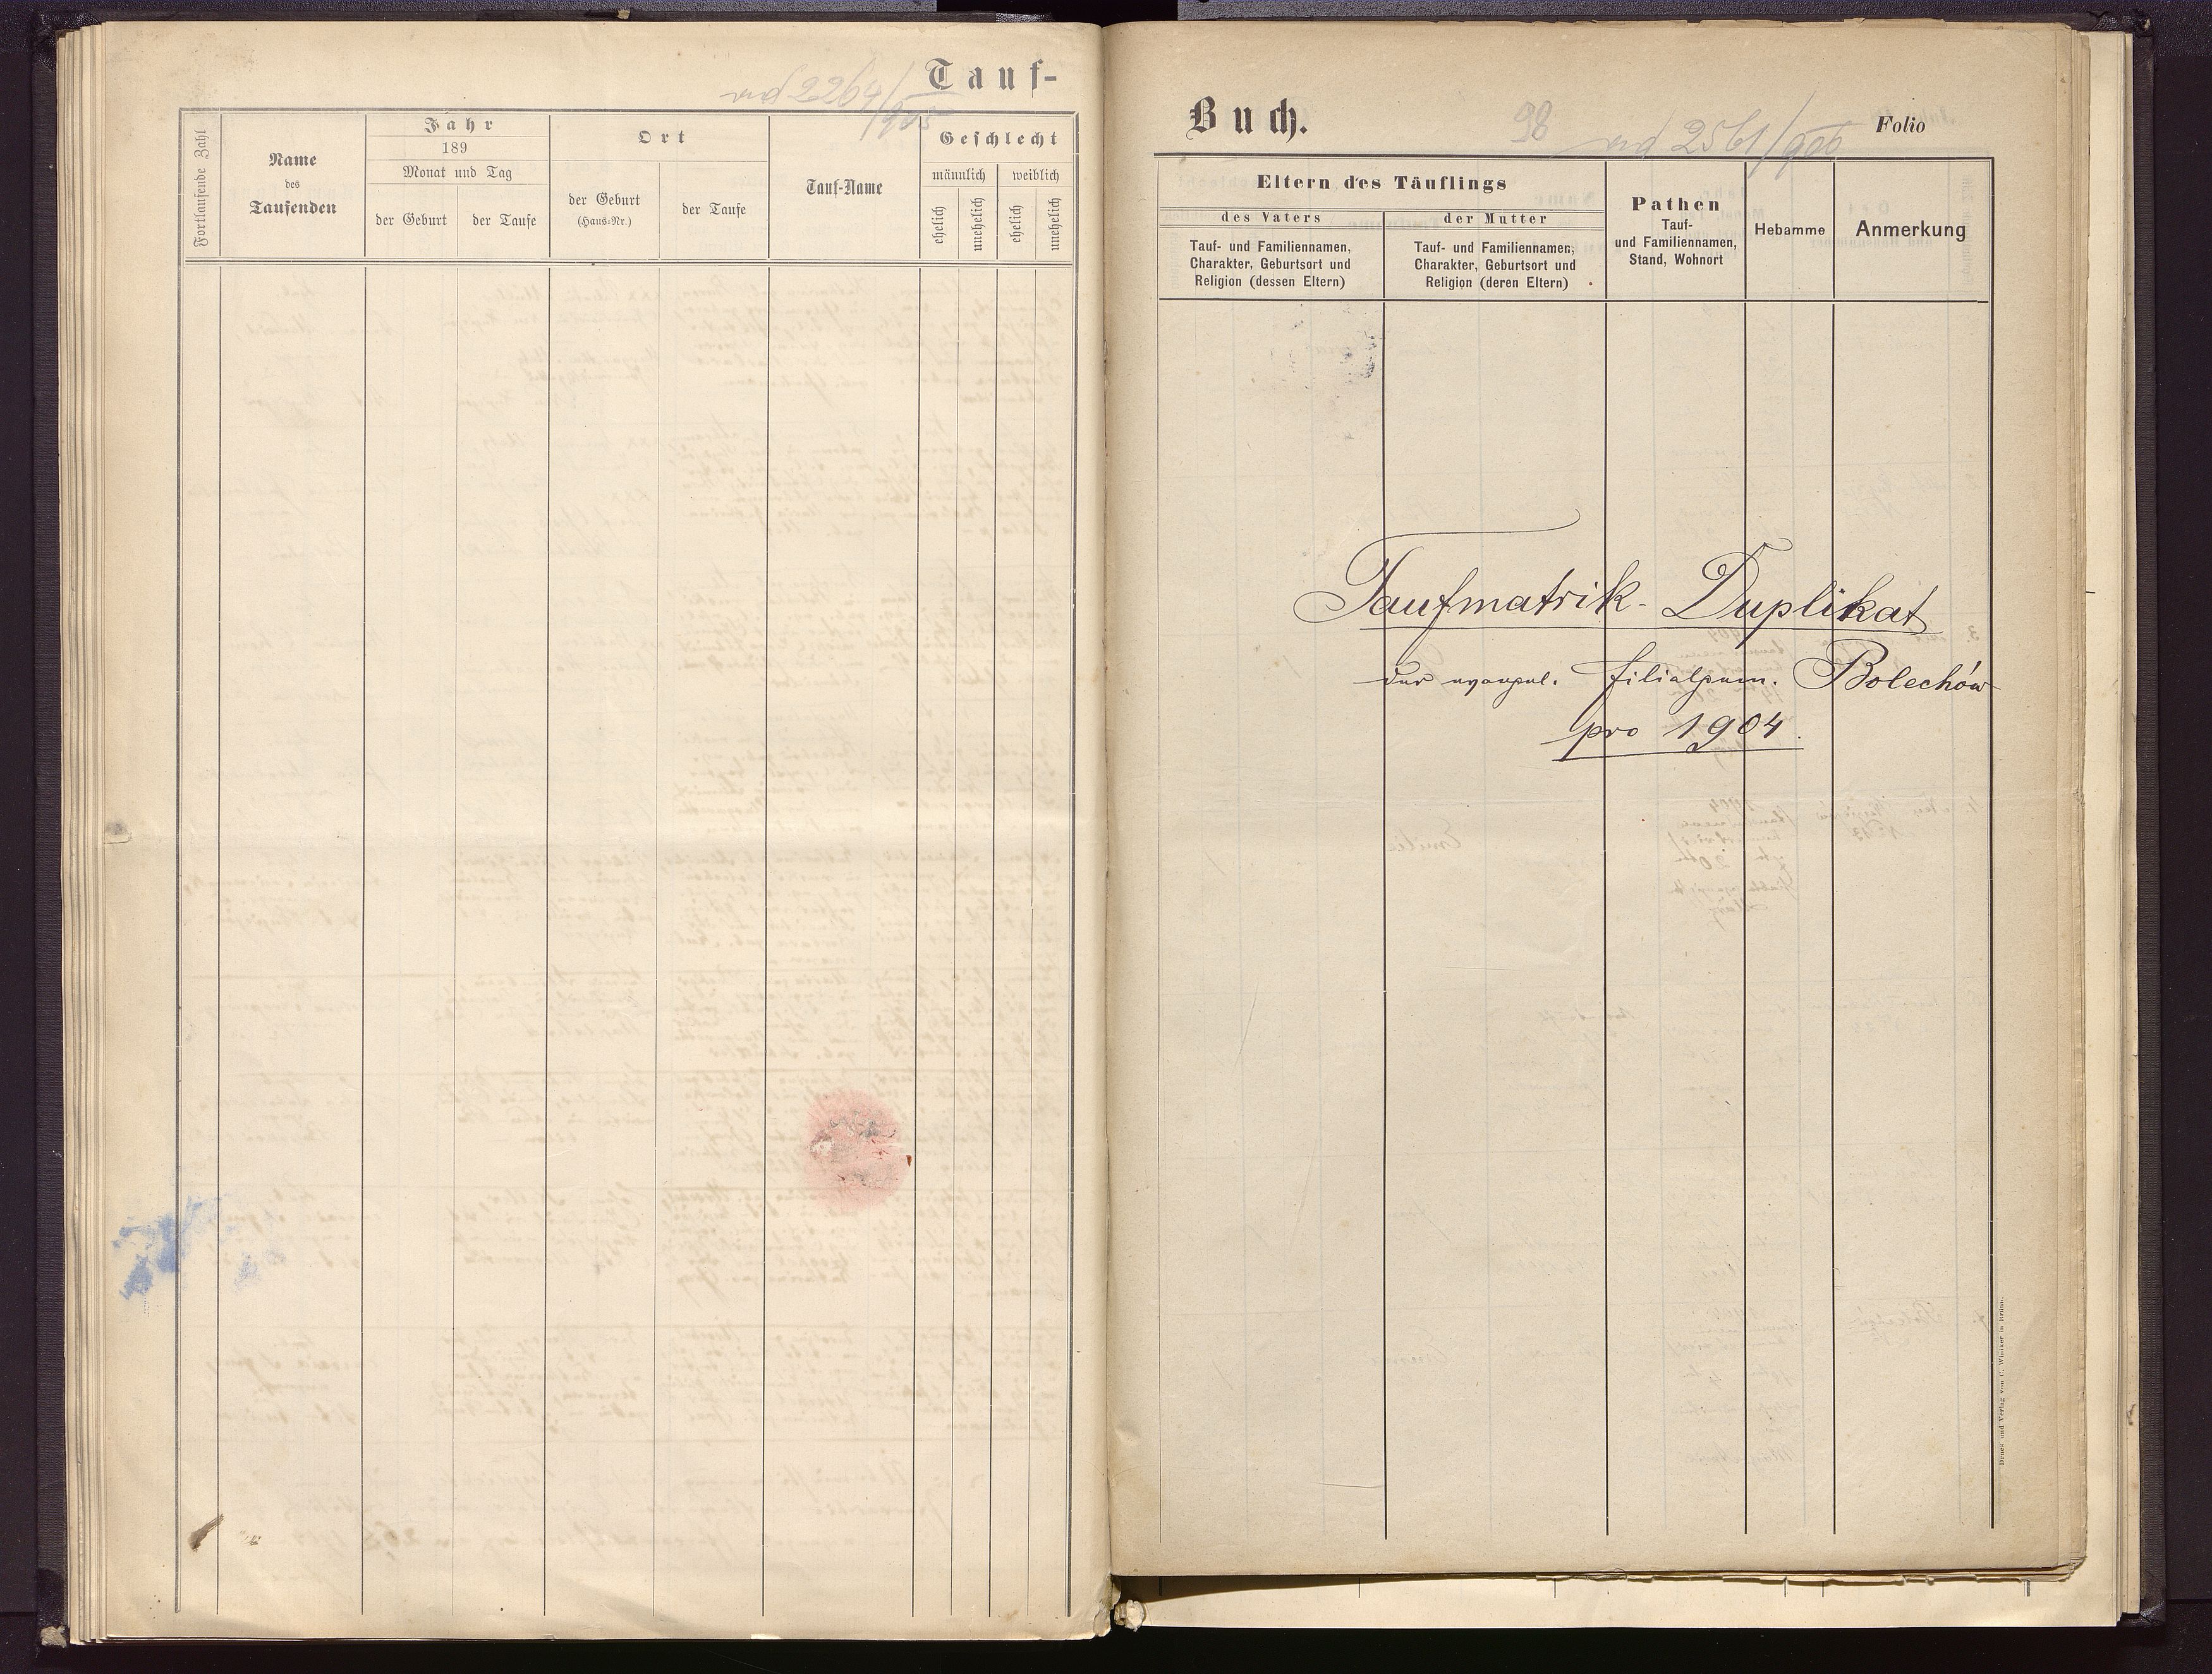 ad 2264/905
Tauf-
Fortlaufende Zahl
Name
des
Taufenden
Jahr
189
Monat und Tag
der Geburt
der Taufe
Ort
der Geburt
(Haus-Nr.)
der Taufe
Tauf-Name
Geschlecht
männlich
weiblich
ehelich
unehelich
ehelich
unehelich
Buch.
98
ad 2561/906
Folio
Eltern des Täuflings
des Vaters
Tauf- und Familiennamen,
Charakter, Geburtsort und
Religion (dessen Eltern)
der Mutter
Tauf- und Familiennamen,
Charakter, Geburtsort und
Religion (deren Eltern)
Pathen
Tauf-
und Familiennamen,
Stand, Wohnort
Hebamme
Anmerkung
Taufmatrik-Duplikat
der evangel. Filialgem. Bolechów
pro 1904.
Druck und Verlag von C. Winiker in Brünn.